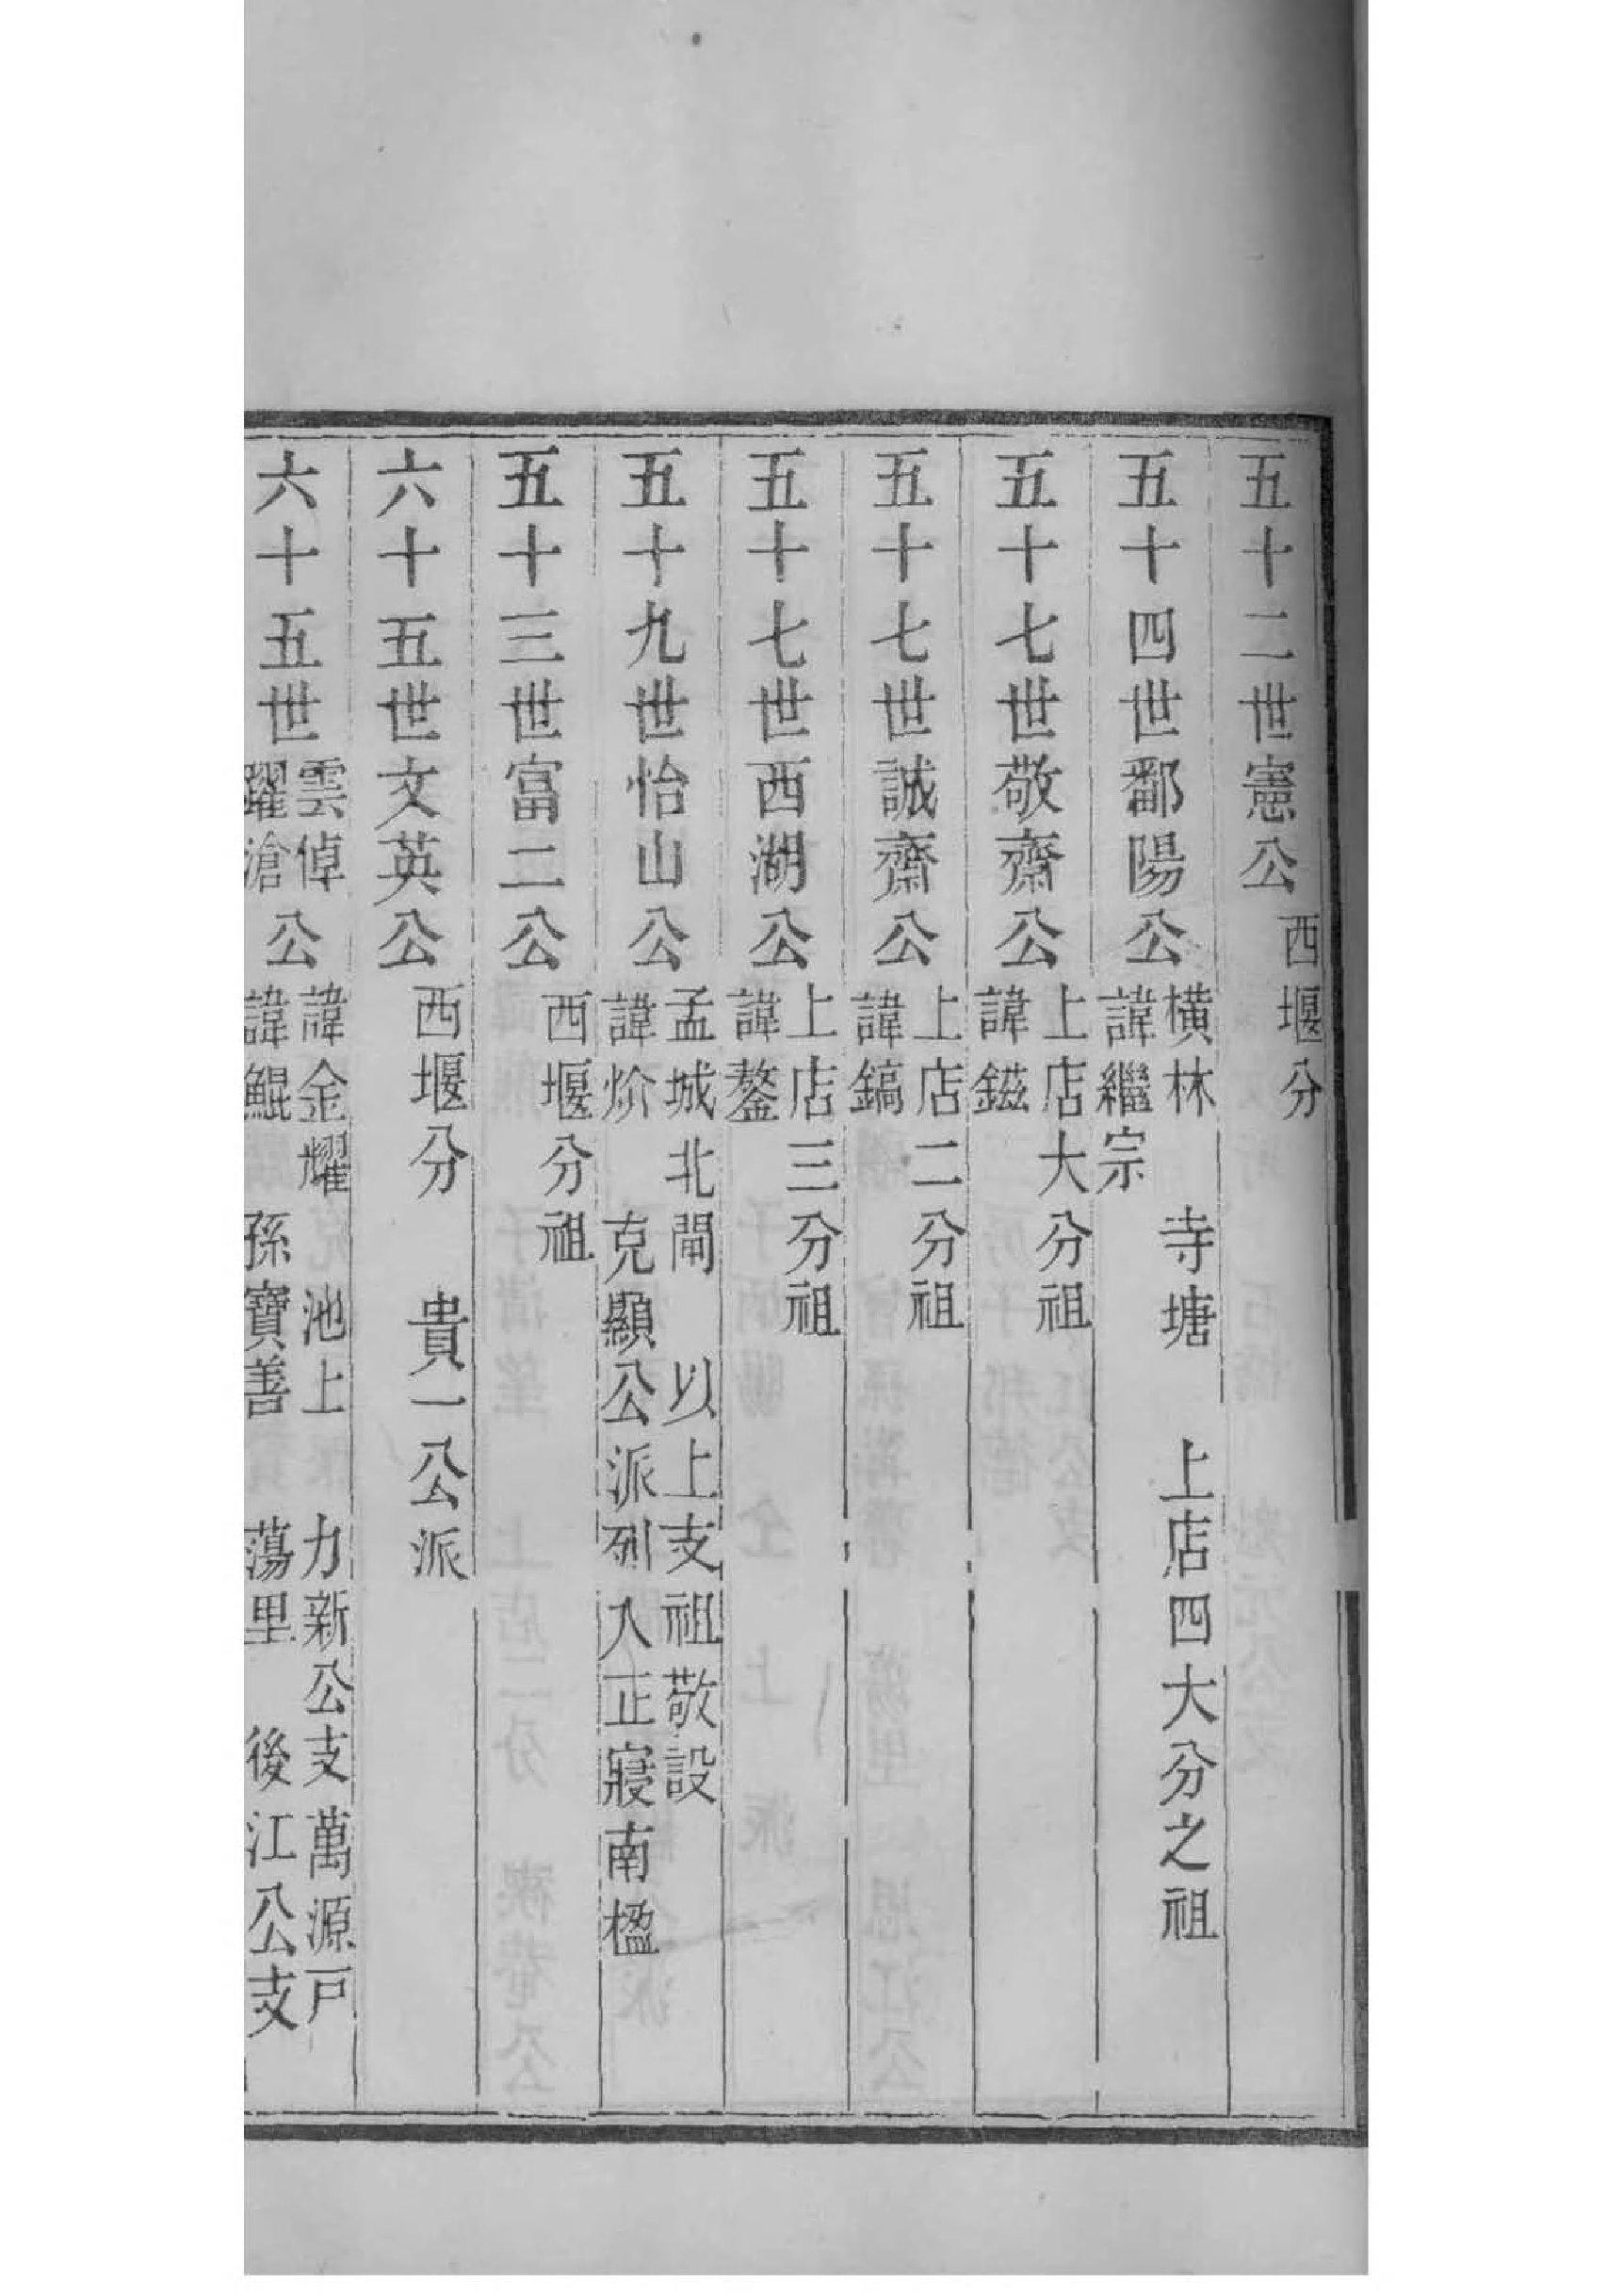 五十二世憲公 西堰分
五十四世鄱陽公 橫林 寺塘 上店四大分之祖
諱繼宗
五十七世敬齋公 上店大分祖
諱鎡
五十七世誠齋公 上店二分祖
諱鎬
五十七世西湖公 上店三分祖
諱鏊
五十九世怡山公 孟城北閘 以上支祖敬設
諱炌 克顯公派列入正寢南楹
五十三世富二公 西堰分祖
六十五世文英公 西堰分 貴一公派
六十五世雲倬公 諱金耀 池上 力新公支萬源戸
躍滄 諱鯤 孫寶善 蕩里 後江公支